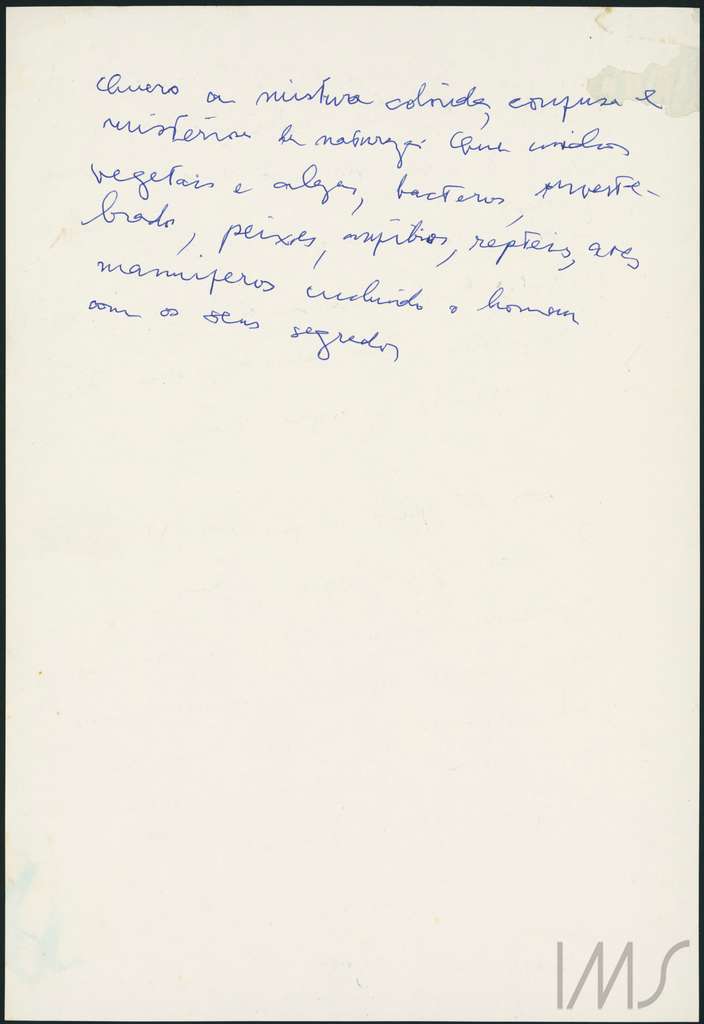 Quero a mistura colorida, confusa e
misteriosa da natureza. Que unidos
vegetais e algas, bactérias, inverte-
brados, peixes, anfíbios, répteis, aves
mamíferos incluindo o homem
com os seus segredos
IMS